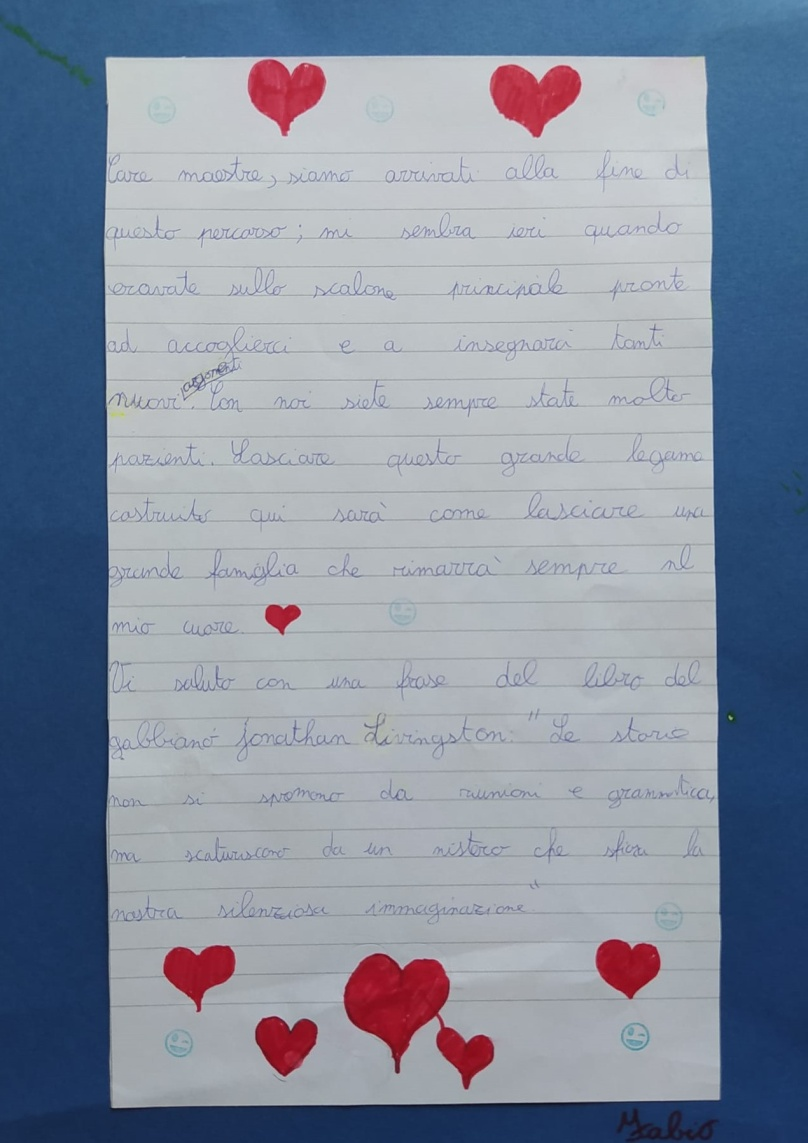 Care maestre, siamo arrivati alla fine di
questo percorso; mi sembra ieri quando
eravate sullo scalone principale pronte
ad accoglierci e a insegnarci tanti
argomenti
nuovi. Con noi siete sempre state molto
pazienti. Lasciare questo grande legame
costruito qui sarà come lasciare una
grande famiglia che rimarrà sempre nel
mio cuore.
Vi saluto con una frase del libro del
gabbiano Jonathan Livingston: "Le storie
non si spremono da riunioni e grammatica,
ma scaturiscono da un mistero che sfiora la
nostra silenziosa immaginazione"
Fabio